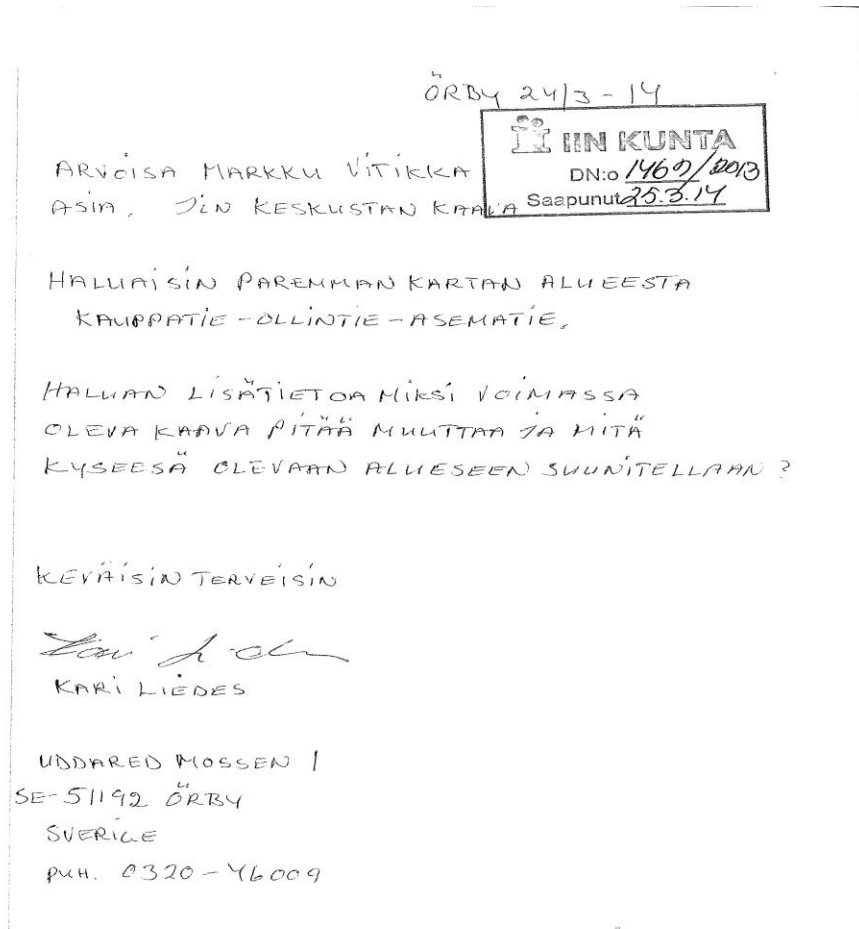 ÖRBY 24/3-14
IIN KUNTA
DN:o 1469/2013
Saapunut 25.3.14
ARVOISA MARKKU VITIKKA
ASIA, IIN KESKUSTAN KAAVA
HALUAISIN PAREMMAN KARTAN ALUEESTA
KAUPPATIE-OLLINTIE-ASEMATIE,
HALUAN LISÄTIETOA MIKSI VOIMASSA
OLEVA KAAVA PITÄÄ MUUTTAA JA MITÄ
KYSEESÄ OLEVAAN ALUESEEN SUUNITELLAAN?
KEVÄISIN TERVEISIN
KARI LIEDES
UDDARED MOSSEN 1
SE-51192 ÖRBY
SVERIGE
PUH. 0320-46009